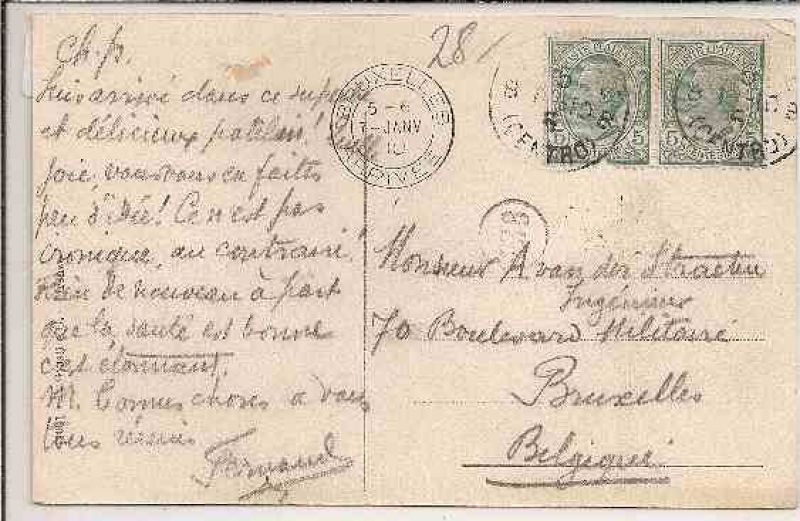 Ch. p.
28
Suis arrivé dans ce superbe
et délicieux patelin!
joie, vous vous en faites
peu d'idée! Ce n'est pas
cronique, au contraire!
Rien de nouveau à part
que la santé est bonne
c'est étonnant.
M. bonnes choses à vous
tous réunis
Fernand
BRUXELLES
5-6
7 JANV
10
ARRIVÉE
5 5
(CENTRO)
5
(CENTRO)
Monsieur A van der Straeten
Ingénieur
70 Boulevard Militaire
Bruxelles
Belgique